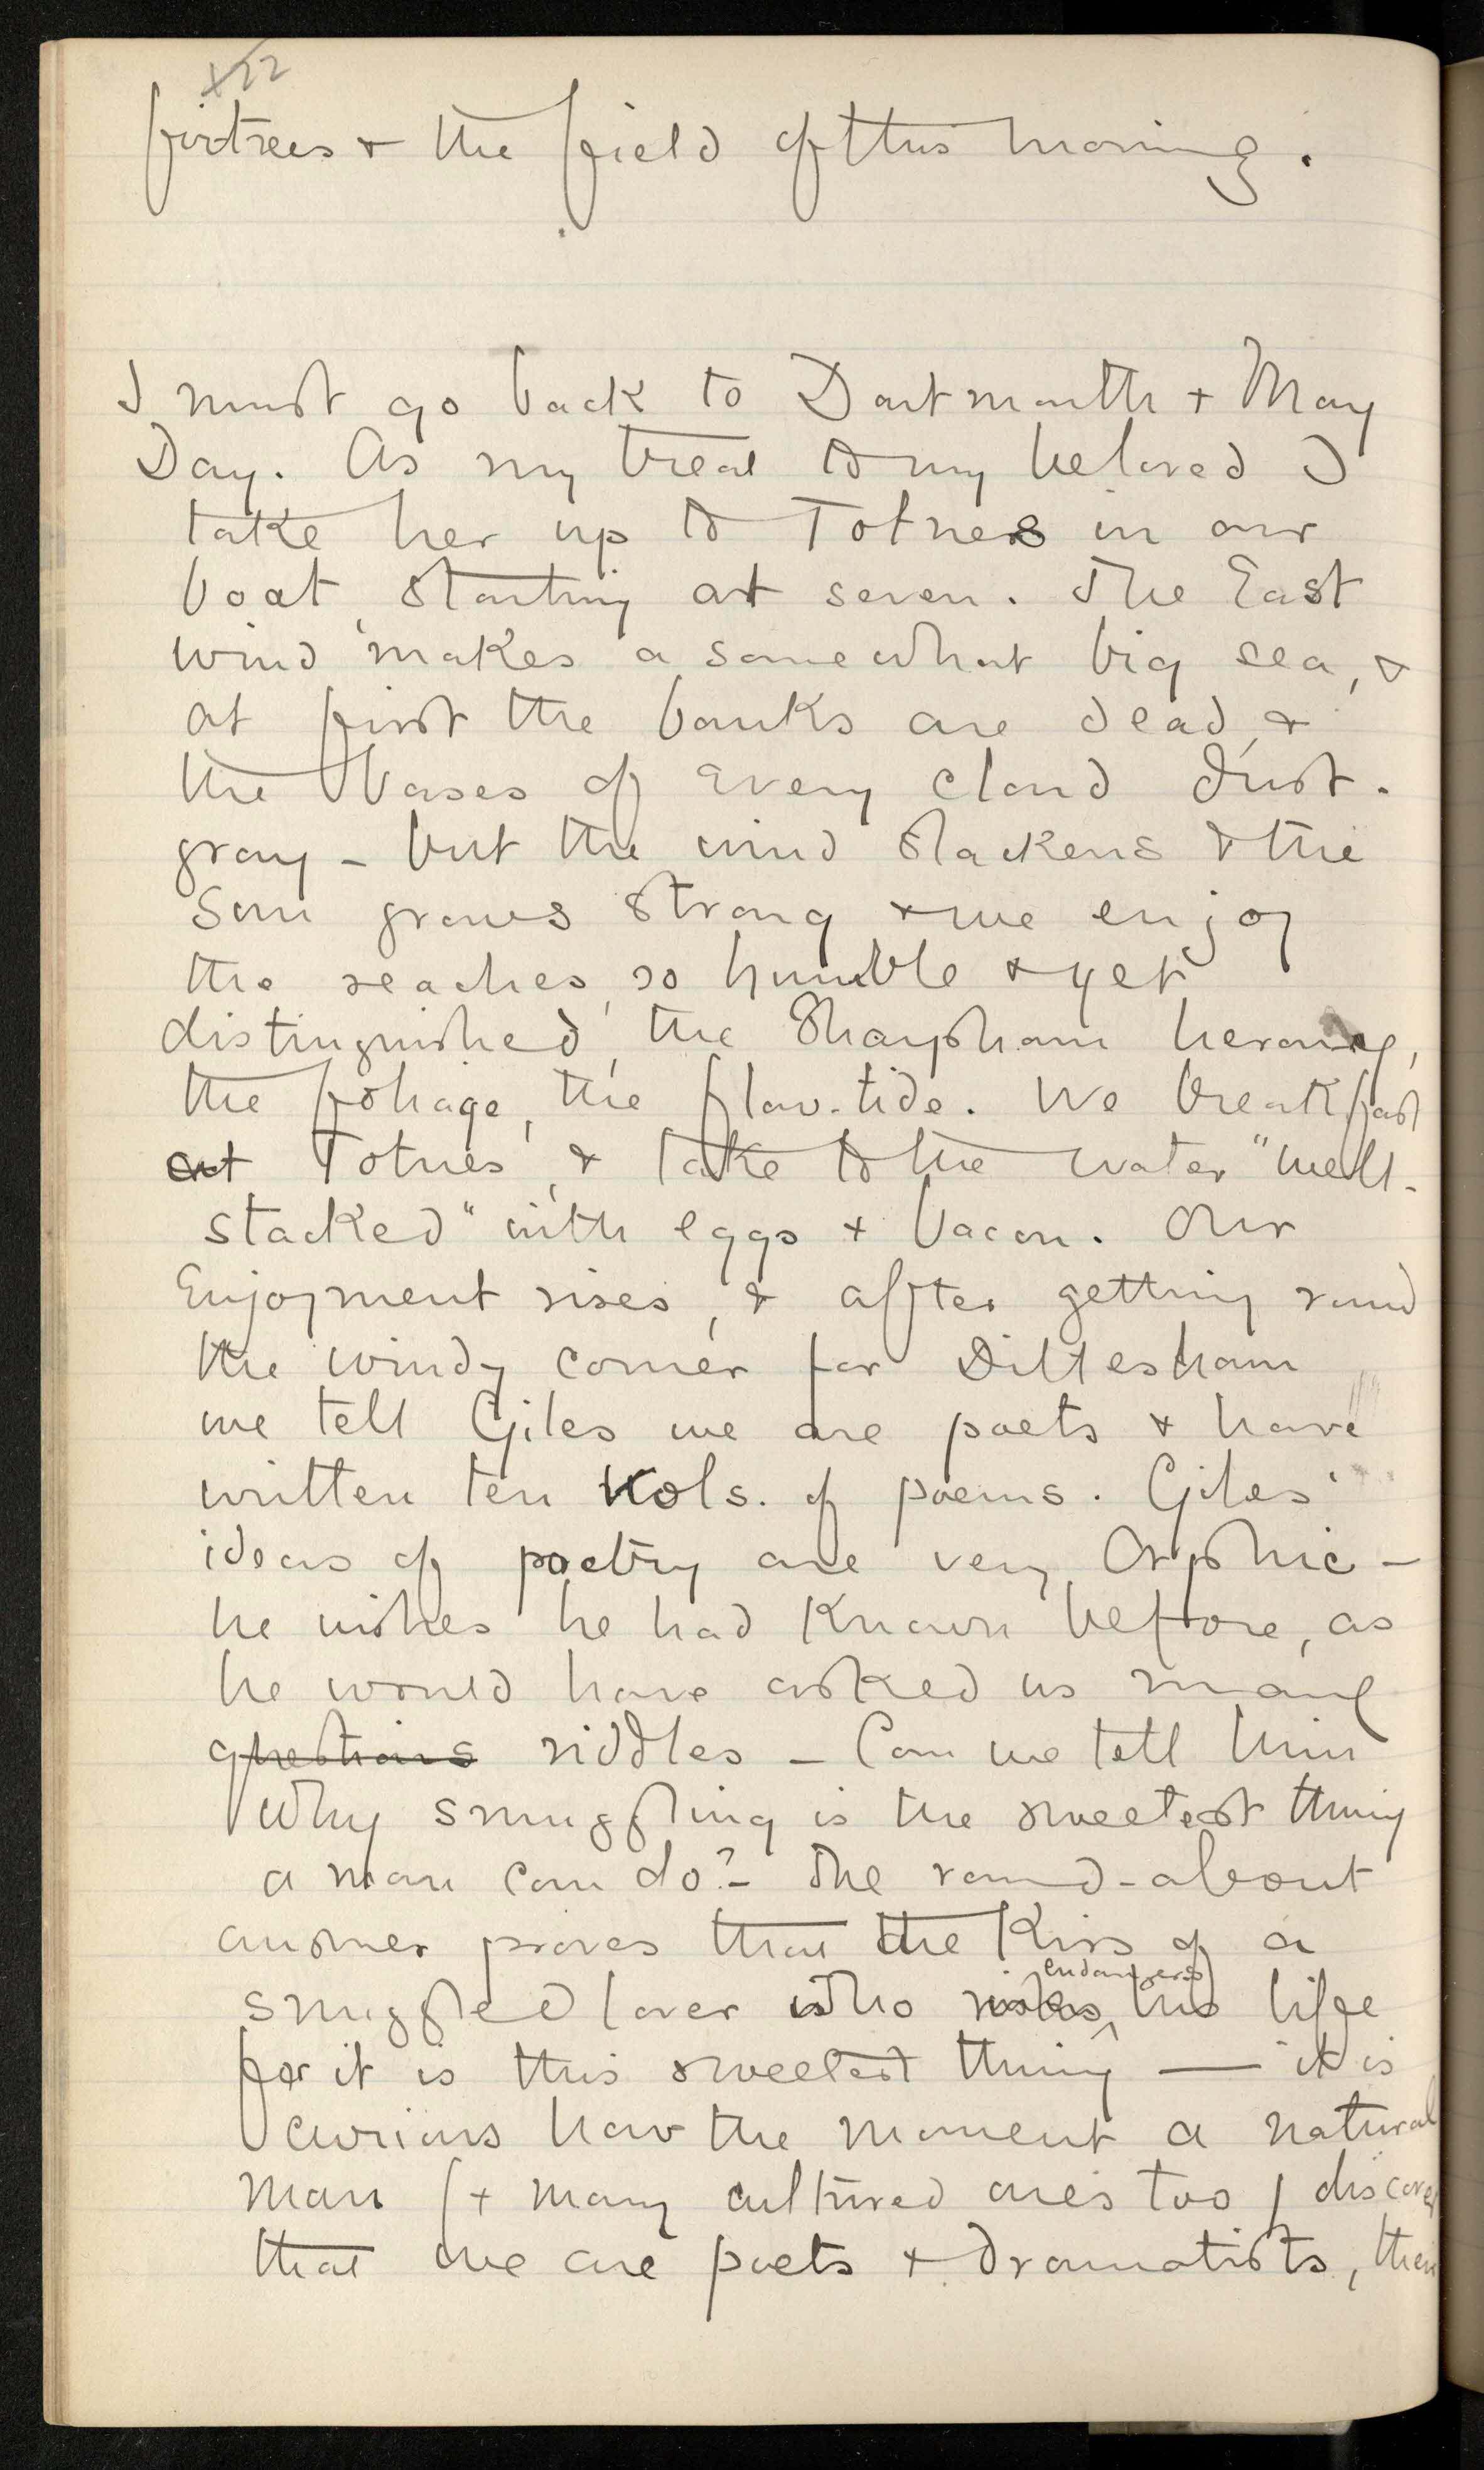 firtrees & the field of this morning.
I must go back to Dartmouth & May
Day. As my treat to my beloved I
take her up to Totnes in our
boat, starting at seven. The East
wind makes a somewhat big sea, &
at first the banks are dead, &
the bases of every cloud dust-
gray - but the wind slackens & the
sun grows strong & we enjoy
the reaches, so humble & yet
distinguished, the Sharpham heronry,
the foliage, the flow-tide. We breakfast
at Totnes, & take to the water "well-
stacked" with eggs & bacon. Our
Enjoyment rises, & after getting round
the windy corner for Dittesham
we tell Giles we are poets & have
written ten vols. of poems. Giles'
ideas of poetry are very Orphic -
he wishes he had known before, as
he would have asked us many
questions riddles - Can we tell him
Why smuggling is the sweetest thing
a man can do? - The round-about
answer proves that the Kiss of a
endangers
smuggled lover who risks his life
for it is this sweetest thing — it is
curious how the moment a natural
man (& many cultured ones too) discover
that we are poets & dramatists, then